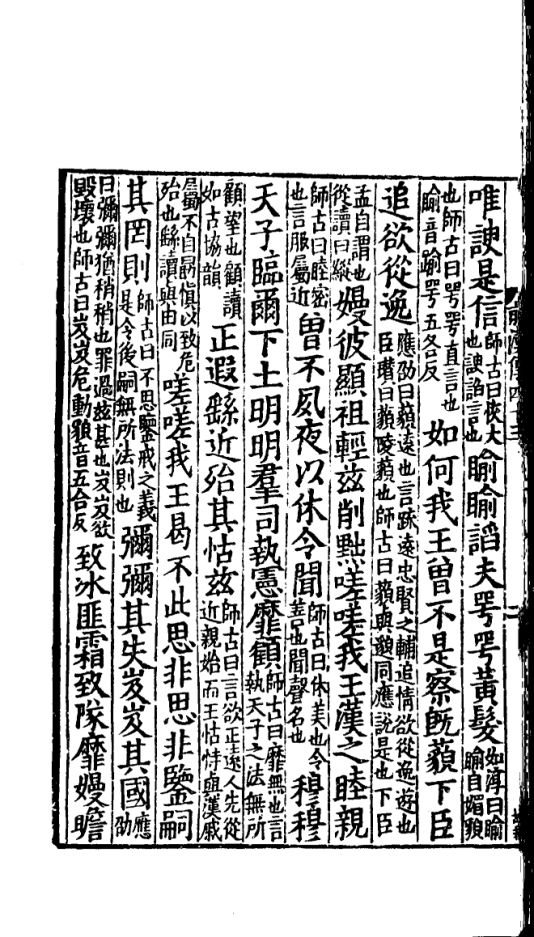 唯諛是信師古曰恢大也諛諂言也睮睮諂夫咢咢黃髮如淳曰睮睮自媚貌
也師古曰咢咢直言也睮音踰咢五各反如何我王曾不是察旣藐下臣
追欲從逸應劭曰藐遠也言疏遠忠賢之輔追情欲從逸遊也臣瓚曰藐陵藐也師古曰藐與邈同應說是也下臣
孟自謂也從讀曰縱嫚彼顯祖輕茲削黜嗟嗟我王漢之睦親
師古曰睦密也言服屬近曾不夙夜以休令聞師古曰休美也令善也聞聲名也穆穆
天子臨爾下土明明羣司執憲靡顧師古曰靡無也言執天子之法無所
顧望也顧讀如古協韻正遐繇近殆其怙茲師古曰言欲正遠人先從近親始而王怙恃與漢戚
屬不自勗愼以致危殆也繇讀與由同嗟嗟我王曷不此思非思非鑒嗣
其罔則師古曰不思鑒戒之義是令後嗣無所法則也彌彌其失岌岌其國應劭
曰彌彌猶稍稍也罪過茲甚也岌岌欲毀壞也師古曰岌岌危動貌音五合反致冰匪霜致隊靡嫚瞻